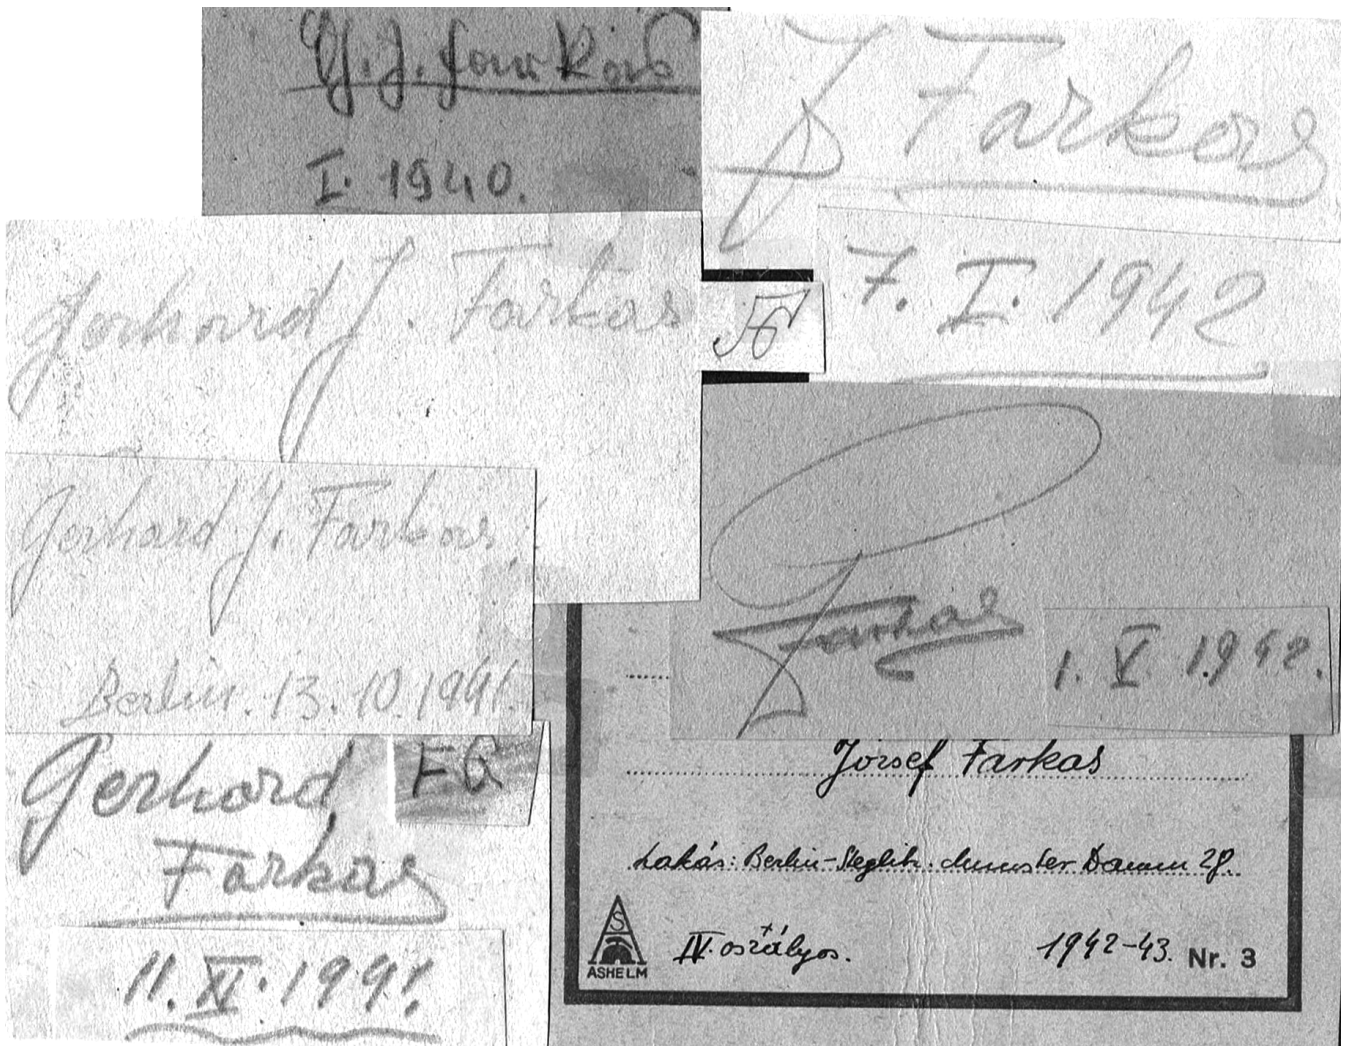 G. J. Farkas
I. 1940.
J Farkas
7. I. 1942
Gerhard J. Farkas
Gerhard J. Farkas
Berlin. 13.10.1941.
Farkas
1. V 1942.
Gerhard
Farkas
FG
11. XI. 1941.
József Farkas
Lakás: Berlin-Steglitz. Damm 28.
IV. osztályos.
1942-43.
Nr. 3
AS
ASHELM